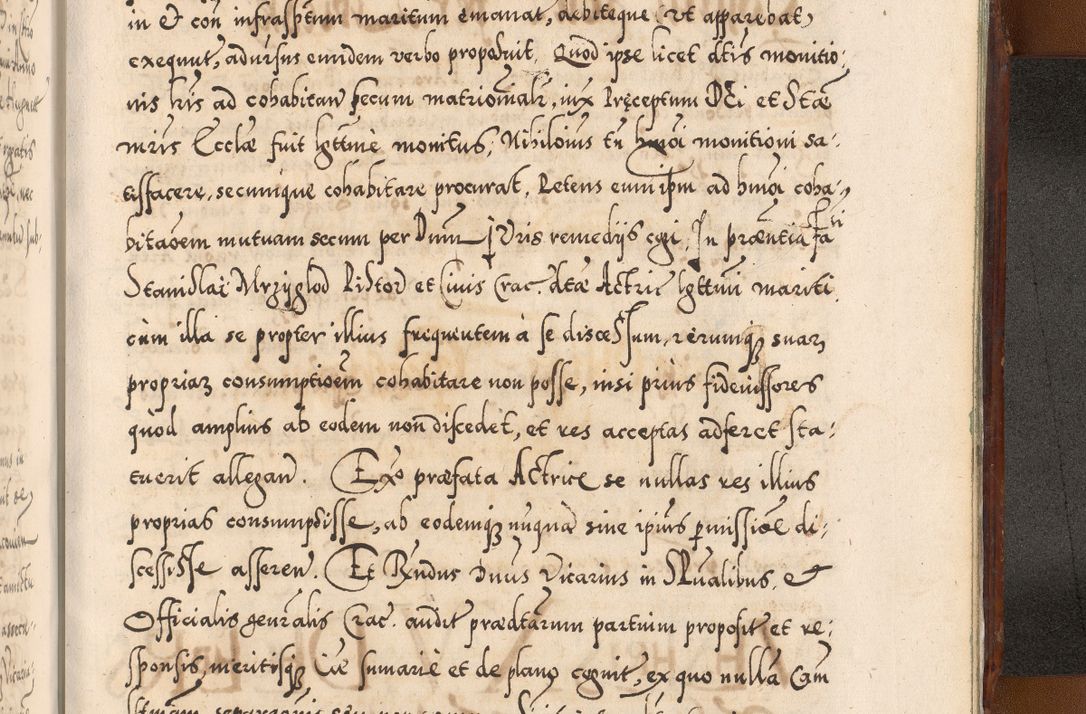 in & con infrasptum maritum emanat, debiteque (vt apparebat)
exequut, adursus eundem verbo proposuit. Quod ipse licet dtis monitio:
nis lris ad cohabitan secum matrionialr, iux Pręceptum DEi et Stæ
mris Ecclæ fuit lgttime monitus, Nihiloius tn hmoi monitioni sa:
tisfacere, secumque cohabitare procurat, Petens eum ipm ad hmoi coha:
bitaoem mutuam secum per Dnum Iuris remedijs cogi. In præntia fa
Stanislai Mrzyglod Pistor et Ciuis Crac. dtæ Actric lgttimi mariti
cum illa se propter illius frequentem à se discessum, rerumq suarz
propriaz consumptioem cohabitare non posse, nisi prius fideiussores
quòd amplius ab eodem non discedet, et res acceptas adferet sta:
tuerit allegan. Exo præfata Actrice se nullas res illius
proprias consumpsisse, ab eodemq nuqua sine ipius pmissioe di:
scessisse asseren. Et Rndus Dnus Vicarius in Sprualibus, &
Officialis genralis Crac. audit prædtarum partium proposit et re:
sponsis, meritisq Cæ sumariè et de plano cognit, ex quo nulla Cam